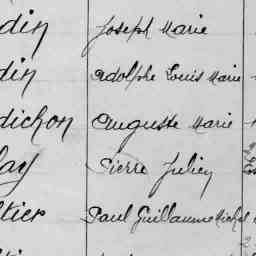 din Joseph Marie
din Adolphe Louis Marie
dichon Auguste Marie
lay Pierre Julien
ltier Paul Guillaume Michel